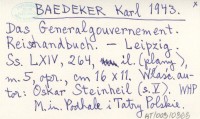 BAEDEKER Karl 1943.
Das Generalgouvernement.
Reisehandbuch. — Leipzig
Ss. LXIV, 264, il. (plany),
m. 5, opr., cm 16 x 11. Właśc. au-
tor: Oskar Steinheil (s. V). WHP
M. in. Podhale i Tatry Polskie.